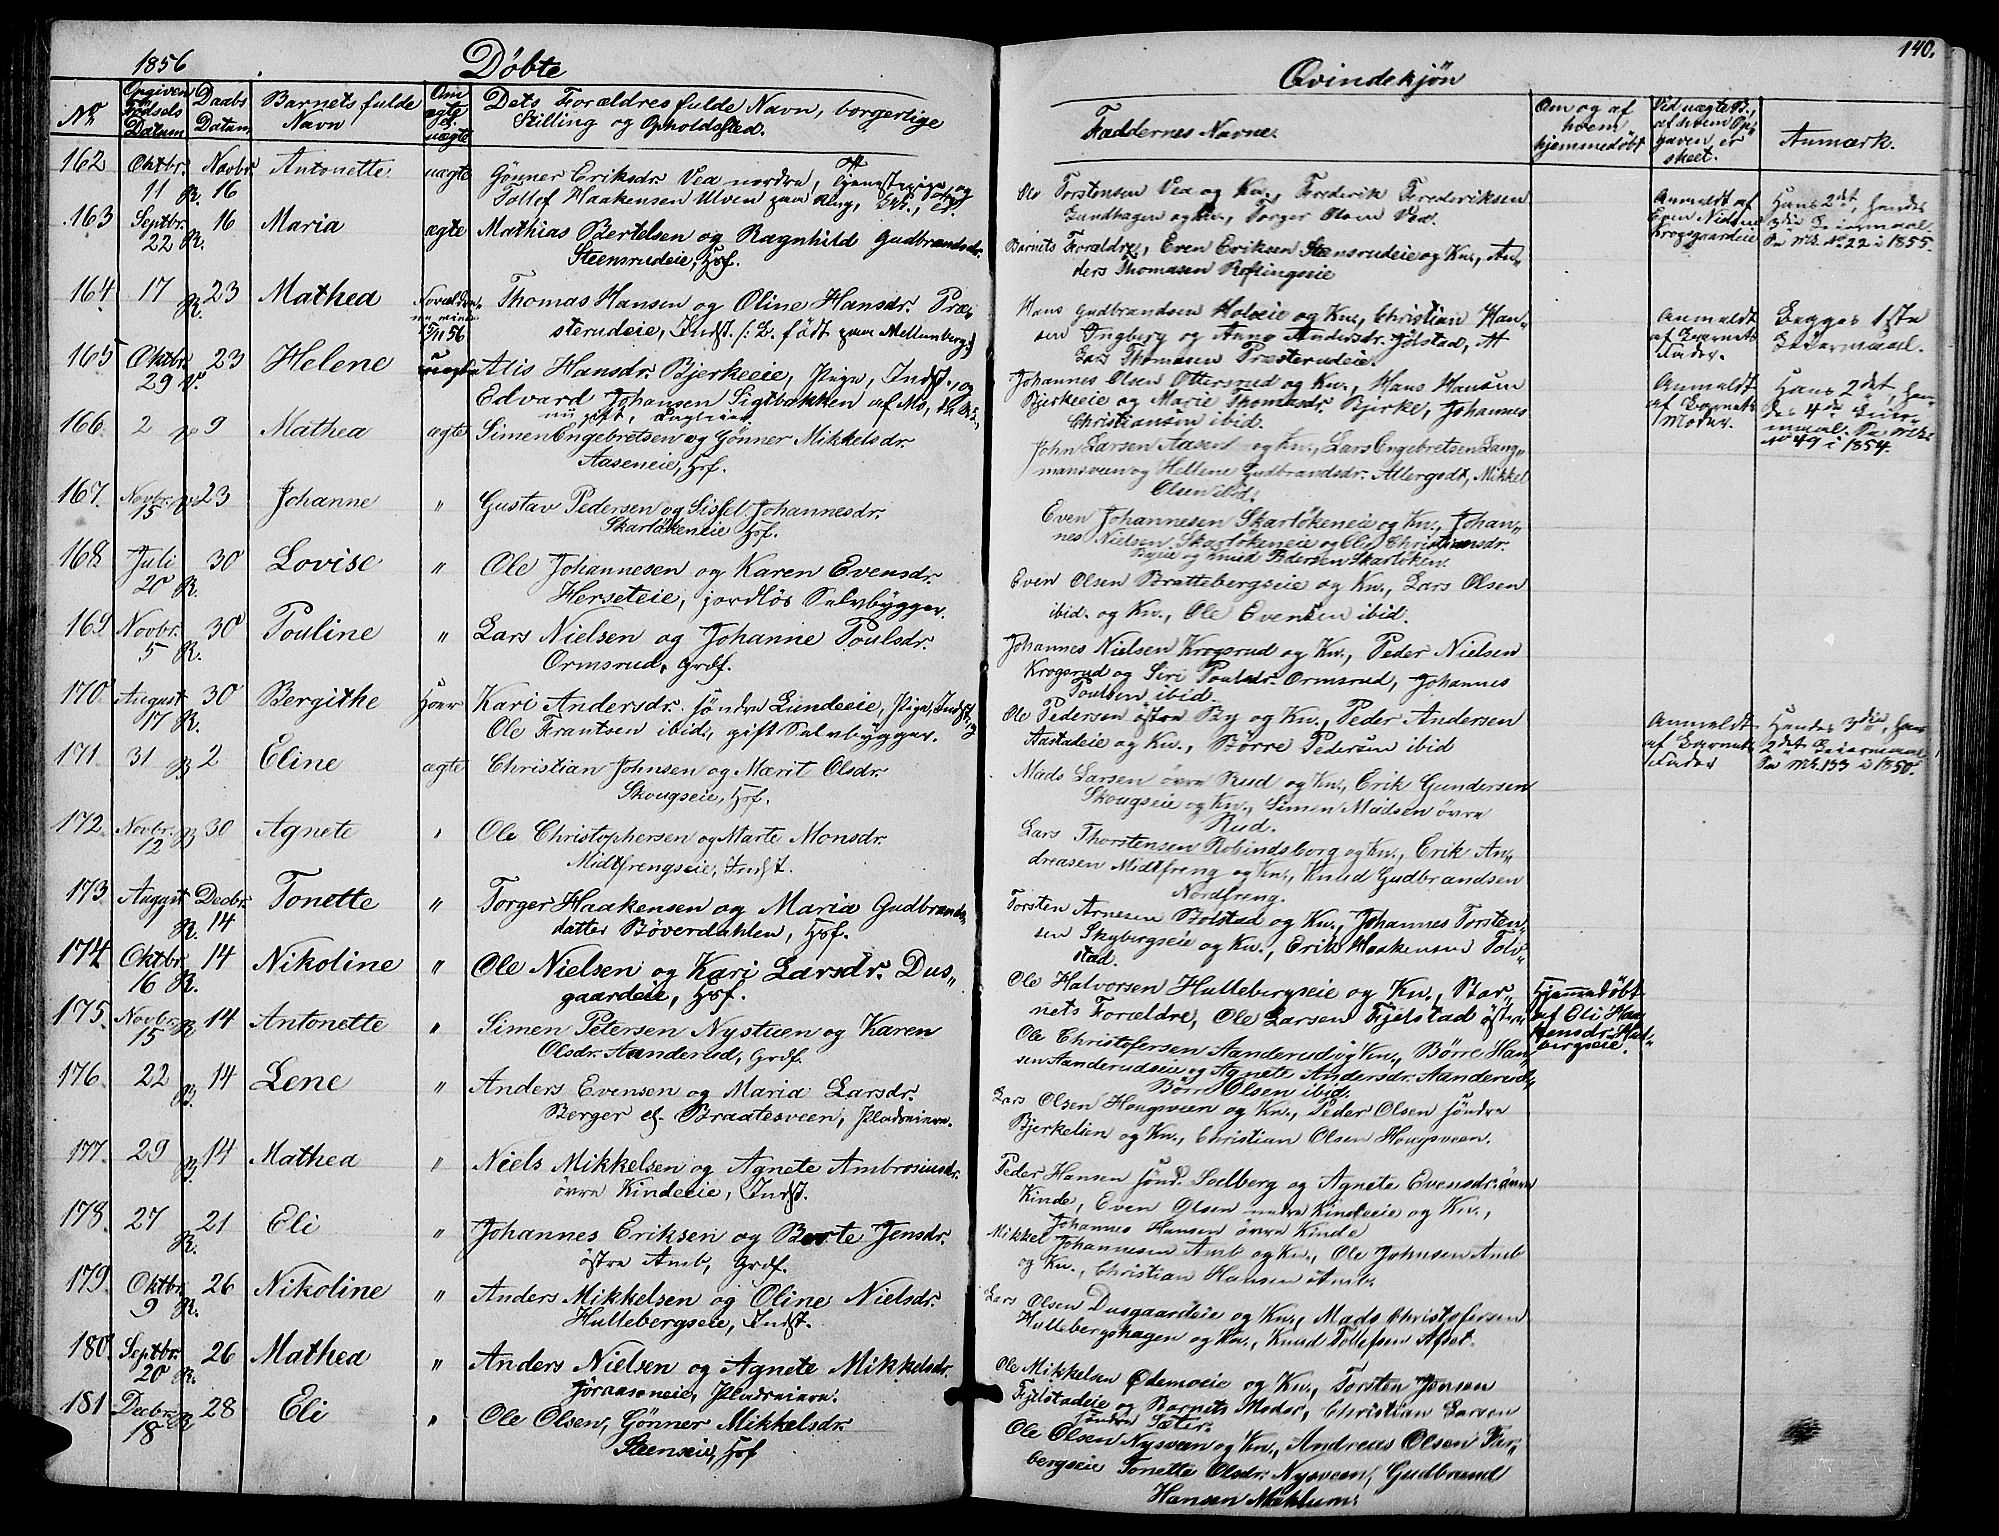 1856
Døbte
No.
Opgiven Fødsels Datum
Daabs Datum
Barnets fulde Navn
Om ægte el. uægte
Dets Forældres fulde Navn, borgerlige
Stilling og Opholdssted.
162 Oktbr. 11 R. Novbr. 16 Antonette uægte Gønner Eriksdr. Vea nordre, Tjenestepige og
Tollef Haakensen Ulven paa Ring,
163 Septbr. 22 R. 16 Maria ægte Mathias Bertelsen og Ragnhild Gudbrandsdr.
Steensrudeie, Hsf.
164 17 R. 23 Mathea Thomas Hansen og Oline Hansdr. Præ-
sterudeie, Indst.
165 Oktbr. 29 23 Helene uægte Alis Hansdr. Bjerkeeie, Pige, Indst. og
Edvard Johansen Sigtbakken af Mo,
166 2 9 Mathea ægte Simen Engebretsen og Gønner Mikkelsdr.
Aaseneie, Hsf.
167 Novbr. 15 23 Johanne " Gustav Pedersen og Sissel Johannesdr.
Skarløkeneie Hsf.
168 Juli 20 R. 30 Lovise " Ole Johannesen og Karen Evensdr.
Herseteie, jordløs Selvbygger.
169 Novbr. 5 R. 30 Pouline " Lars Nielsen og Johanne Poulsdr.
Ormsrud, Grdf.
170 August 17 R. 30 Bergithe Hoer Kari Andersdr. søndre Lundeeie, Pige, Indst. og
Ole Frantsen ibid., gift Selvbygger.
171. 31 2 Eline ægte Christian Johnsen og Mærit Olsdr.
Skougseie, Hsf.
172 Novbr. 12 30 Agnete Ole Christophersen og Marte Monsdr.
Midtfrengseie, Indst.
173 August 7 R. Decbr. 14 Tonette " Torger Haakensen og Maria Gudbrands-
datter Bøverdahlen, Hsf.
174 Oktbr. 16 R. 14 Nikoline " Ole Nielsen og Kari Larsdr. Dus-
gaardeie, Hsf.
175. Novbr. 15 14 Antonette " Simen Petersen Nystuen og Karen
Olsdr. Aanderud, Grdf.
176. 22 14 Lene " Anders Evensen og Maria Larsdr.
Berger el. Braatesveen,
177. 29 14 Mathea " Niels Mikkelsen og Agnete Ambrosiusdr.
øvre Kindeeie, Indst.
178. 27 R. 21 Eli " Johannes Eriksen og Berte Jensdr.
østre Amb, Grdf.
179. Oktbr. 9 R. 26 Nikoline " Anders Mikkelsen og Oline Nielsdr.
Hullebergseie, Indst.
180 Septbr. 20 R. 26 Mathea " Anders Nielsen og Agnete Mikkelsdr.
181 Decbr. 18 28 Eli " Ole Olsen, Gønner Mikkelsdr.
Steenseie, Hsf
140.
Qvindekjøn
Faddernes Navne.
Om og af hvem hjemmedøbt
Ved uægte B., af hvem Opgaven er skeet.
Anmærk.
Ole Torstensen Vea og Kn., Frederik Frederiksen
Lundhagen og Kn., Torger Olsen Vea.
Anmeldt af Even Nielsen Krogsgaardeie
Hans 2det, Hendes 3die Leiermaal.
No. 22 i 1855.
Barnets Forældre, Even Eriksen Stensrudeie og Kn., An-
ders Thomasen Roftingseie
Hans Gudbrandsen Holseie og Kn., Christian Han-
sen Ingberg og Anne Andersdr. Jølstad,
Thomasen Præsterudeie.
Anmeldt af Barnets Fader.
Begges 1ste Leiermaal.
Johannes Olsen Ottersrud og Kn., Hans Hansen
Bjerkeeie og Marie Thomasdr. Bjerke, Johannes
Christiansen ibid.
Anmeldt af Barnets Moder.
Hans 2det, Hendes 4de Leiermaal.
No 49 i 1854.
John Larsen Aasen og Kn., Lars Engebretsen Lang-
mansveen og Hellene Gudbrandsdr. Allergodt, Mikkel
Olsen ibid.
Even Johannesen Skarløkeneie og Kn., Johan-
nes Nielsen Skarløkeneie og Christiansdr.
Byeie og Knud Pedersen Skarløken.
Even Olsen Brattebergseie og Kn., Lars Olsen
ibid. og Kn., Ole Evensen ibid.
Johannes Nielsen Krogsrud og Kn., Peder Nielsen
Krogsrud og Siri Poulsdr. Ormsrud, Johannes
Poulsen ibid.
Ole Pedersen østre By og Kn., Peder Andersen
Aastadeie og Kn., Børre Pedersen ibid
Anmeldt af Barnets Fader
Hendes 3die, Hans 2det Leiermaal
133 i 1850.
Mads Larsen øvre Rud og Kn., Erik Gundersen
Skougseie og Kn., Simen Madsen øvre
Rud.
Lars Thorstensen Robindsborg og Kn., Erik An-
dreasen Midtfreng og Kn., Knud Gudbrandsen
Nordfreng.
Torsten Arnesen Bolstad og Kn., Johannes Torsten-
sen Skybergseie og Kn., Erik Haakensen Tol-
stad.
Ole Halvorsen Hullebergseie og Kn., Bar-
nets Forældre, Ole Larsen Fjelstad østre
Hjemmedøbt af Oli Haakensdr. Hullebergseie.
Ole Christofersen Aanderud og Kn., Børre Han-
sen Aanderudeie og Agnete Andersdr. Aanderud,
Børre Olsen ibid.
Lars Olsen Hougsveen og Kn., Peder Olsen søndre
Bjerkelien og Kn., Christian Olsen Hougsveen.
Peder Hansen sønd. Solberg og Agnete Evensdr. øvre
Kinde, Even Olsen nedre Kindeeie og Kn.,
Johannes Hansen øvre Kinde
Mikkel Johannesen Amb og Kn., Ole Johnsen Amb
og Kn., Christian Hansen Amb.
Lars Olsen Dusgaardeie og Kn., Mads Christofersen
Hullebergshagen og Kn., Knud Tollefsen
Ole Mikkelsen Ødemoeie og Kn., Torsten Jensen
Fjelstadeie og Barnets Moder, Christian Larsen
søndre Sæter.
Ole Olsen Nysveen og Kn., Andreas Olsen Far-
bergseie Tonette Olsdr. Nysveen, Gudbrand
Hansen Mæhlum.